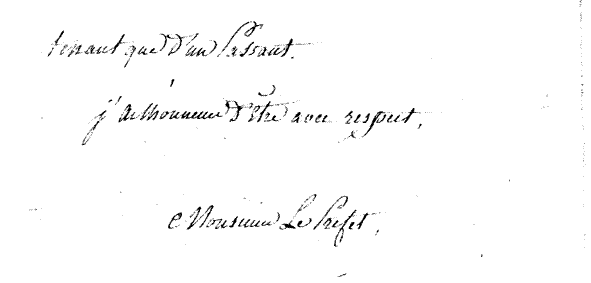 tenant que d'un Passant.
j'ai l'honneur d'être avec respect,
Monsieur Le Prefet,